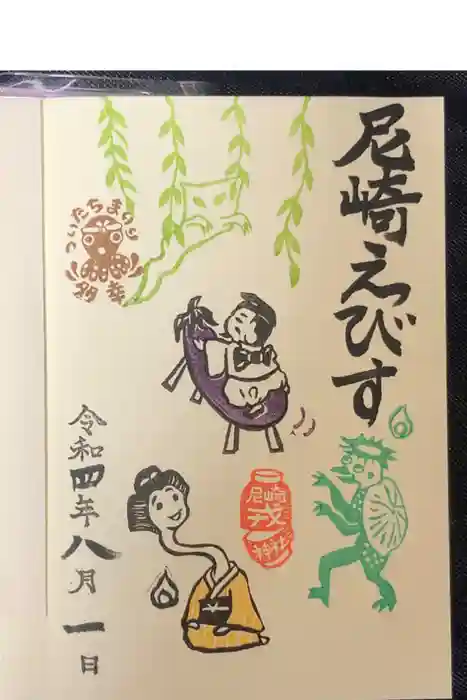 尼崎えびす
ついたちまいり
尼崎
戎
神社
令和四年八月一日